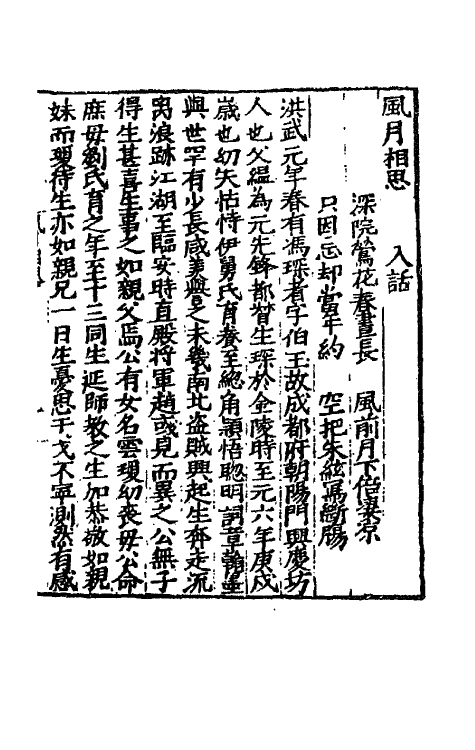 風月相思　入話
深院鶯花春晝長　風前月下倍凄凉
只因忘却當年約　空把朱絃寫斷腸
洪武元年春有馮琛者字伯玉故成都府朝陽門興慶坊
人也父緼為元先鋒都督生琛於金陵時至元六年庚戍
歲也幼失怙恃伊舅氏育養至總角穎悟聦明詞章翰墨
與世罕有少長咸羙興之未幾南北盗賊興起生奔走流
离浪跡江湖至臨安時直殿将軍趙彧見而異之公無子
得生甚喜生事之如親父焉公有女名雲瓊幼丧毋公命
庶毋劉氏育之年至十三同生延師教之生加恭敬如親
妹而瓊待生亦如親兄一日生憂思干戈不寧測然有感